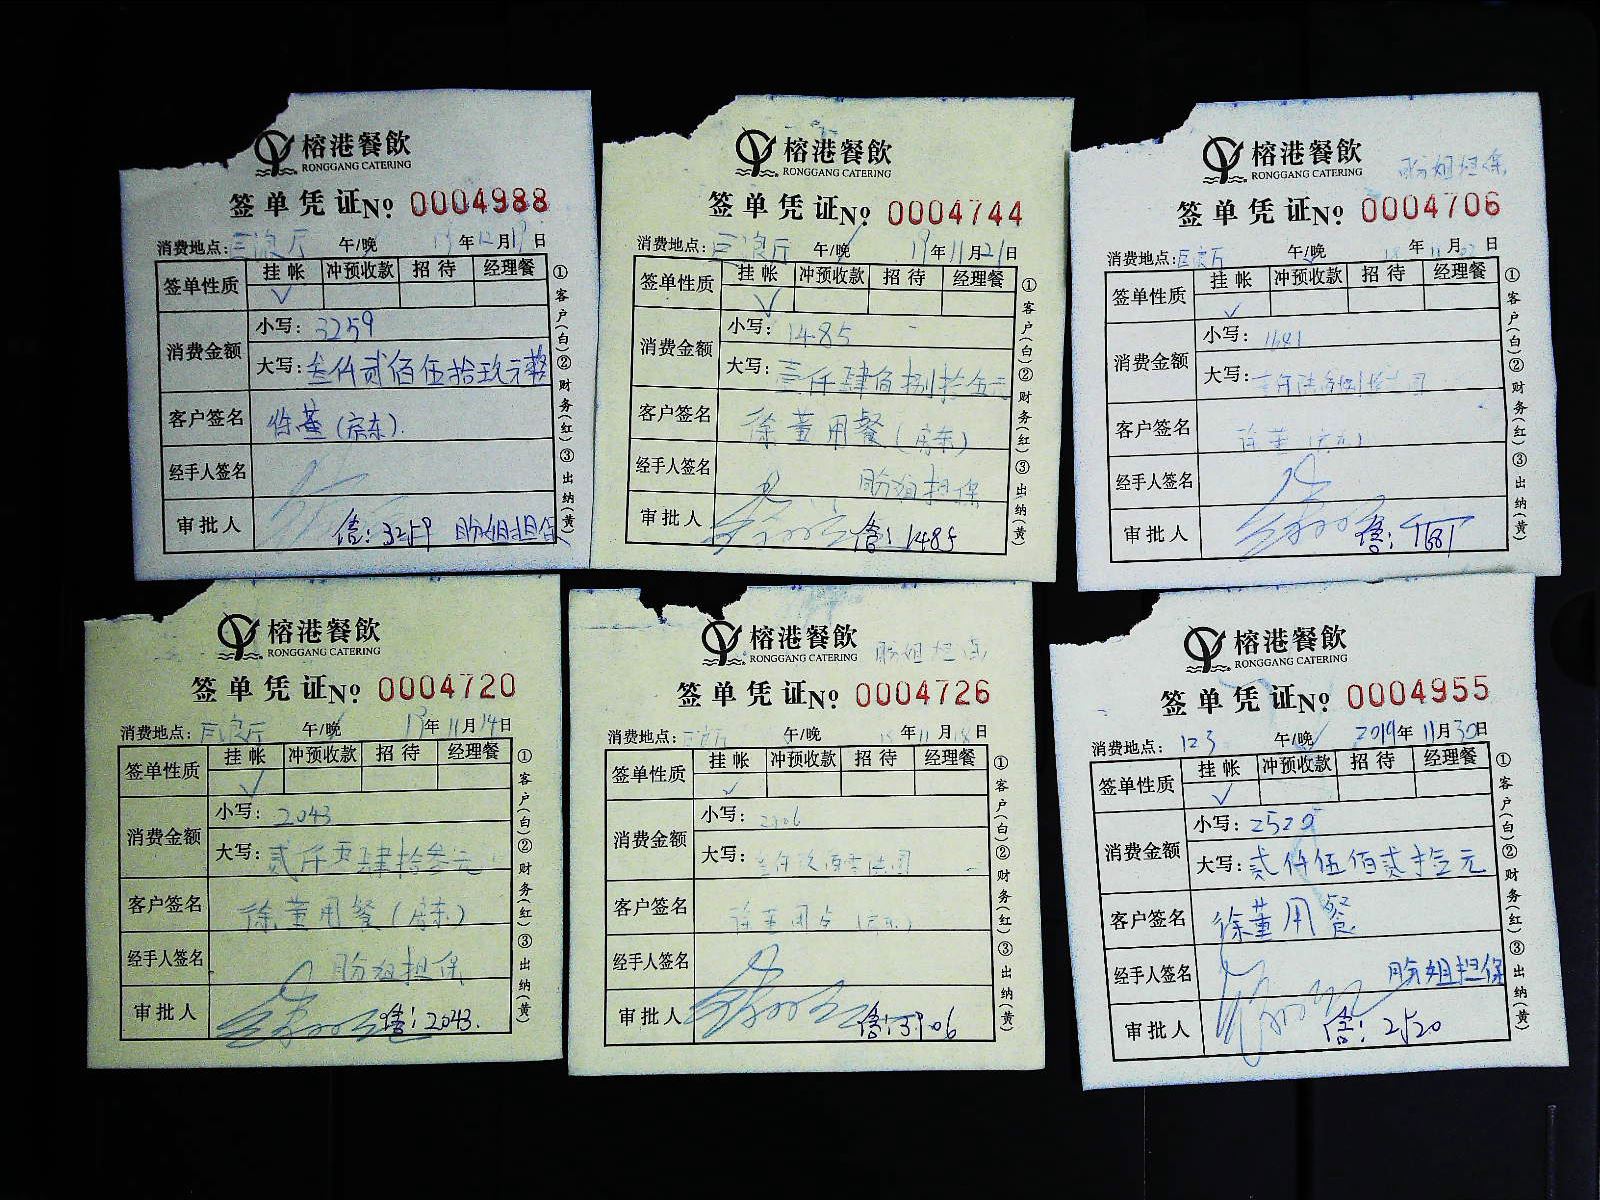 榕港餐飲
RONGGANG CATERING
签单凭证 No 0004988
消费地点: 午/晚 年12月19日
签单性质 挂帐 冲预收款 招待 经理餐
✓
消费金额 小写: 3259
大写: 叁仟贰佰伍拾玖元整
客户签名 徐董(房东).
经手人签名
审批人 售: 3259 盼姐担保
①客户(白)②财务(红)③出纳(黄)
榕港餐飲
RONGGANG CATERING
签单凭证 No 0004744
消费地点: 午/晚 19年11月21日
签单性质 挂帐 冲预收款 招待 经理餐
✓
消费金额 小写: 1485
大写: 壹仟肆佰捌拾伍元
客户签名 徐董用餐(房东)
经手人签名 盼姐担保
审批人 售: 1485
①客户(白)②财务(红)③出纳(黄)
榕港餐飲
RONGGANG CATERING
盼姐担保
签单凭证 No 0004706
消费地点: 午/晚 年 月 日
签单性质 挂帐 冲预收款 招待 经理餐
✓
消费金额 小写: 1681
大写:
客户签名 徐董(房东)
经手人签名
审批人 售: 1681
①客户(白)②财务(红)③出纳(黄)
榕港餐飲
RONGGANG CATERING
签单凭证 No 0004720
消费地点: 午/晚 19年11月14日
签单性质 挂帐 冲预收款 招待 经理餐
✓
消费金额 小写: 2043
大写: 贰仟零肆拾叁元
客户签名 徐董用餐(房东)
经手人签名 盼姐担保
审批人 售: 2043.
①客户(白)②财务(红)③出纳(黄)
榕港餐飲
RONGGANG CATERING
盼姐担保
签单凭证 No 0004726
消费地点: 午/晚 年11月18日
签单性质 挂帐 冲预收款 招待 经理餐
✓
消费金额 小写:
大写:
客户签名
经手人签名
审批人 售:
①客户(白)②财务(红)③出纳(黄)
榕港餐飲
RONGGANG CATERING
签单凭证 No 0004955
消费地点: 123 午/晚 2019年11月30日
签单性质 挂帐 冲预收款 招待 经理餐
✓
消费金额 小写: 2520
大写: 贰仟伍佰贰拾元
客户签名 徐董用餐
经手人签名 盼姐担保
审批人 售: 2520
①客户(白)②财务(红)③出纳(黄)